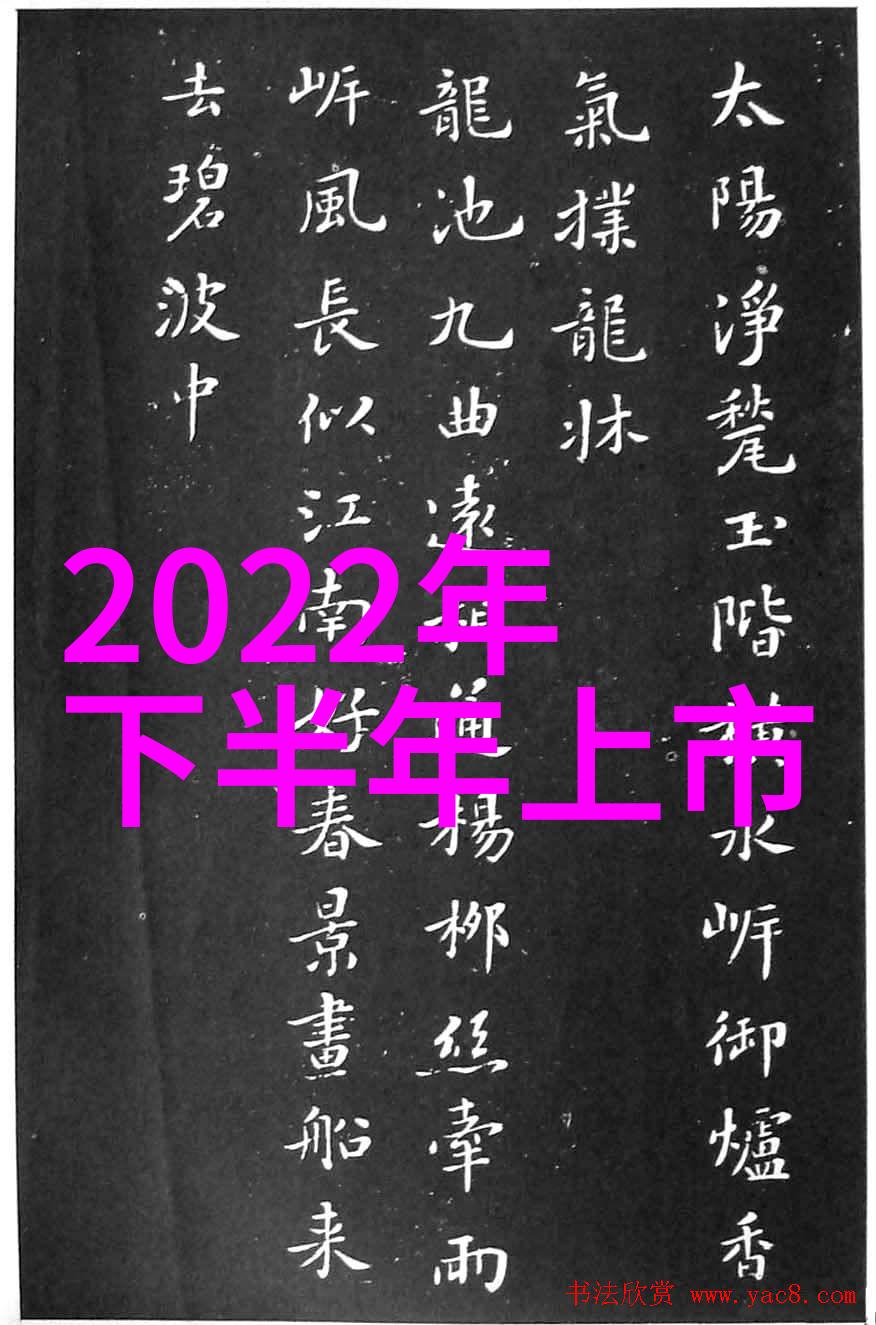 太陽淨甃玉階橫水㟁御爐香
氣撲龍牀
龍池九曲遠相通楊柳絲牽兩
㟁風長似江南好春景畫船来
去碧波中
2022年
下半年上市
书法欣赏 www.yac8.com